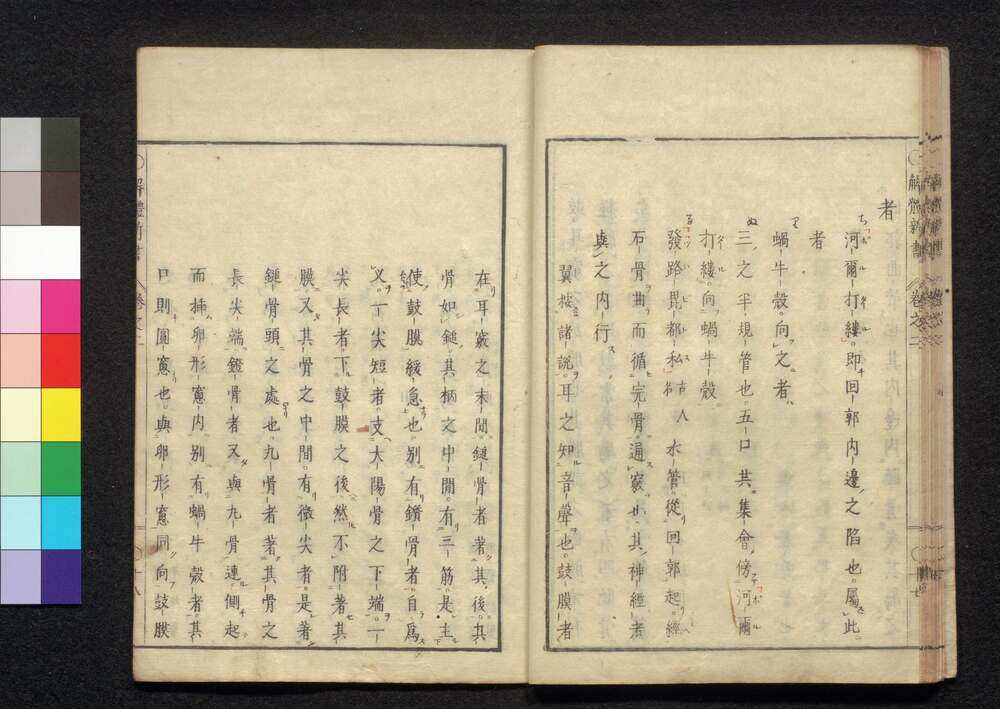 者
河爾打縷。即回郭内邊之陷也。屬此
者
蝸牛殻。向之者。
三之半規管也。五口共集會。傍河爾
打縷。向蝸牛殻。
發路毘都私 古人 水管。從回郭起。經
石骨曲而循完骨。通竅也。其神經者
與之内行。
翼按。諸説。耳之知音聲也。鼓膜者
在耳竅之末間。鎚骨者著其後。其
骨如鎚。其柄之中間。有三筋。是主
使鼓膜緩急也。別有鑽骨者。自爲
义。一尖短者。支大陽骨之下端。一
尖長者。下鼓膜之後。然不附著其
膜。又其骨之中間。有微尖者。是著
鎚骨頭之處也。九骨者。著其骨之
長尖端。鐙骨者。又與九骨連。側起
而挿卵形窻内。別有蝸牛殻者。其
口則圓窻也。與卵形窻同向鼓膜
解體新書 卷之二 十七
解體新書 卷之二 十八